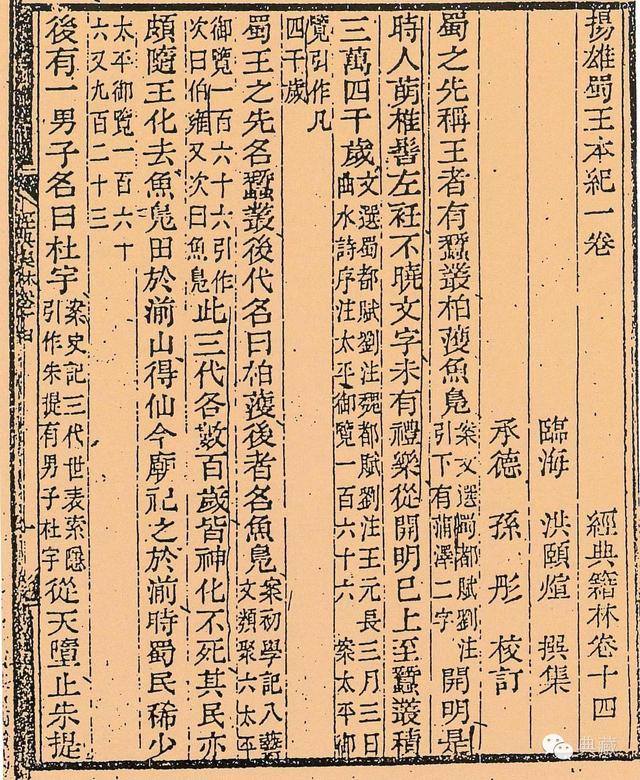 揚雄蜀王本紀一卷 經典籍林卷十四
臨海 洪頤煊 撰集
承德 孫彤 校訂
蜀之先稱王者有蠶叢柏濩魚鳧案文選蜀都賦劉注引下有蒲澤二字開明是
時人萌椎髻左衽不曉文字未有禮樂從開明已上至蠶叢積
三萬四千歲文選蜀都賦劉注魏都賦劉注王元長三月三日曲水詩序注太平御覽一百六十六 案太平御
覽引作凡四千歲
蜀王之先名蠶叢後代名曰柏濩後者名魚鳧案初學記八藝文類聚六太平
御覽一百六十六引作次曰伯雍又次曰魚鳧此三代各數百歲皆神化不死其民亦
頗隨王化去魚鳧田於湔山得仙今廟祀之於湔時蜀民稀少
太平御覽一百六十六又九百二十三
後有一男子名曰杜宇案史記三代世表索隱引作朱提有男子杜宇從天墮止朱提
經典集林卷十四
典藏